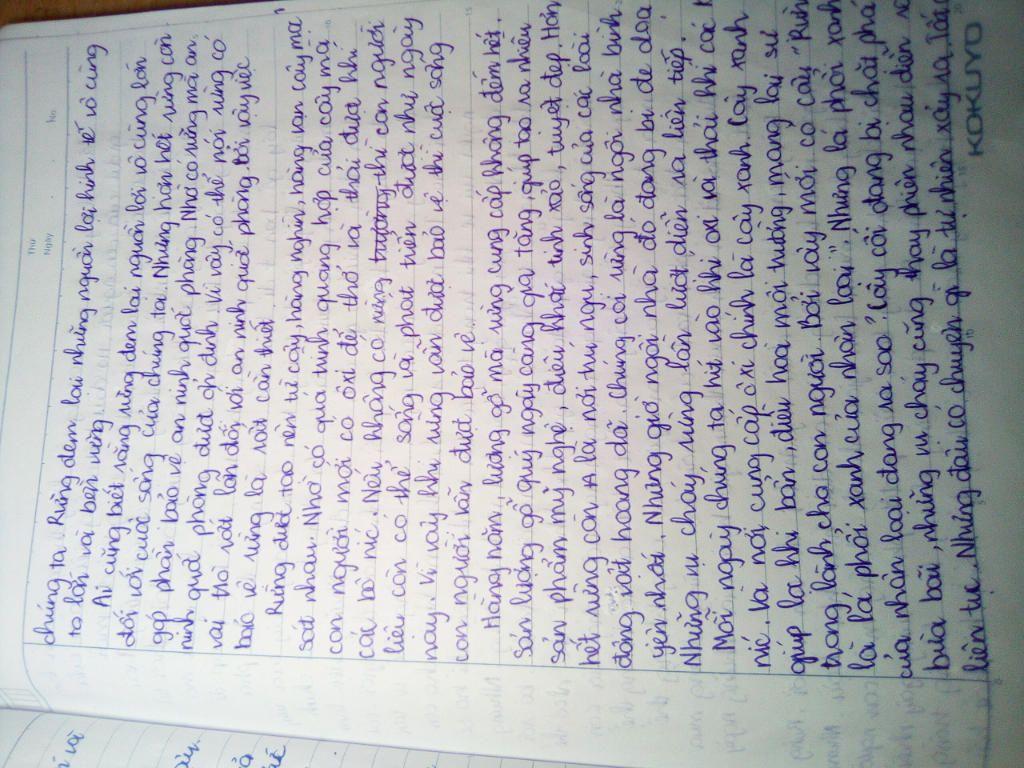 Thứ
Ngày
No.
chúng ta. Rừng đem lại những nguồn lợi, hình tế vô cùng
to lớn và bền vững.
Ai cũng biết rằng, rừng đem lại nguồn lợi vô cùng lớn
đối với cuộc sống của chúng ta. Nhưng hơn hết, rừng còn
góp phần bảo vệ an ninh quốc phòng. Nhờ có rừng mà an
ninh quốc phòng được ổn định. Vì vậy có thể nói rừng có
vai trò rất lớn đối với an ninh quốc phòng. Bởi vậy việc
bảo vệ rừng là rất cần thiết.
Rừng được tạo nên từ cây, hàng nghìn, hàng vạn cây mọc
sát nhau. Nhờ có quá trình quang hợp của cây mà
con người mới có ôxi để thở và thải được khí
các bô níc. Nếu không có rừng thì con người
liệu còn có thể sống và phát triển được như ngày
nay. Vì vậy khi rừng vẫn được bảo vệ thì cuộc sống
con người luôn được bảo vệ.
Hàng năm, lượng gỗ mà rừng cung cấp không đếm hết.
Sản lượng gỗ quý ngày càng gia tăng, giúp tạo ra nhiều
sản phẩm mỹ nghệ, điêu khắc tinh xảo, tuyệt đẹp. Hơn
hết rừng còn là nơi trú ngụ, sinh sống của các loài
động vật hoang dã. Chúng coi rừng là ngôi nhà bình
yên nhất. Nhưng giờ ngôi nhà đó đang bị đe dọa
Những vụ cháy rừng lần lượt diễn ra liên tiếp.
Mỗi ngày chúng ta hít vào khí oxi và thải khí các b
níc. Và nơi cung cấp ôxi chính là cây xanh. Cây xanh
giúp lọc khí bẩn, điều hoà môi trường, mang lại sự
trong lành cho con người. Bởi vậy mới có câu "Rừn
là lá phổi xanh của nhân loại". Nhưng lá phổi xanh
của nhân loại đang ra sao? Cây cối đang bị chặt phá
bừa bãi, những vụ cháy cũng thay phiên nhau diễn ra
liên tục. Nhưng đâu có chuyện gì là tự nhiên xảy ra. Tất c
KOKUYO